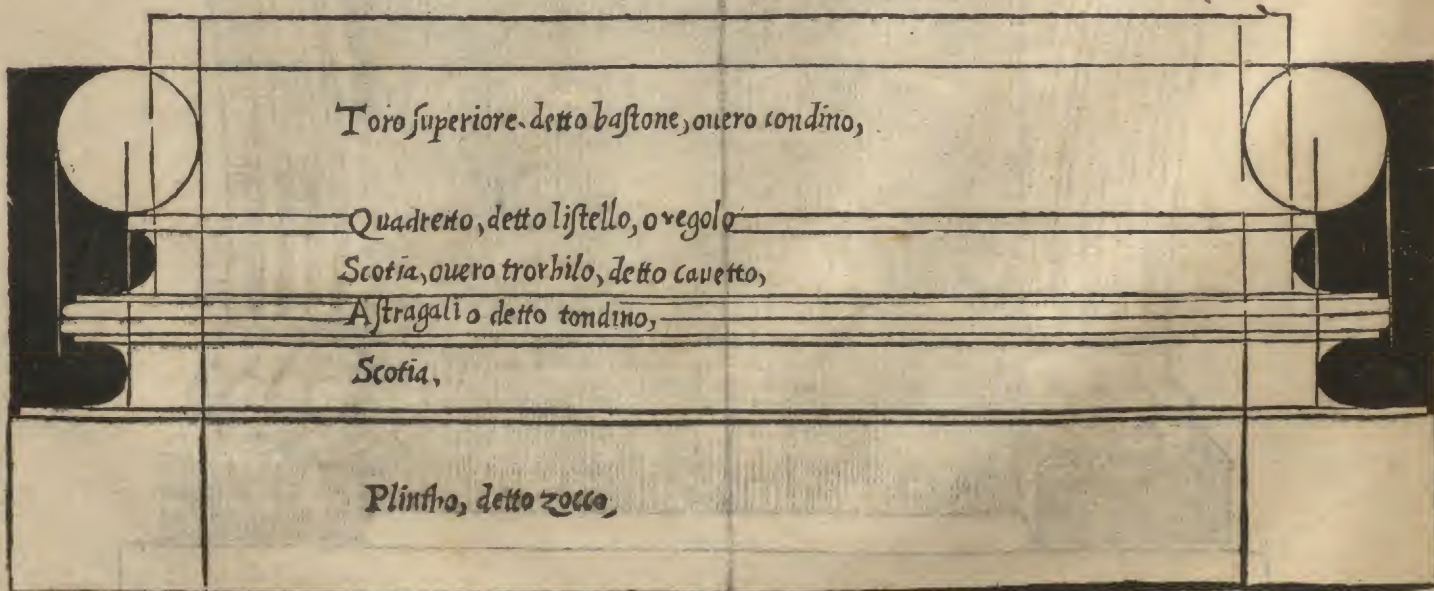 Toro ſuperiore. detto baſtone, ouero tondino,
Quadretto, detto liſtello, o regolo
Scotia, ouero trochilo, detto cauetto,
Aſtragali o detto tondino,
Scotia,
Plintho, detto zocco,